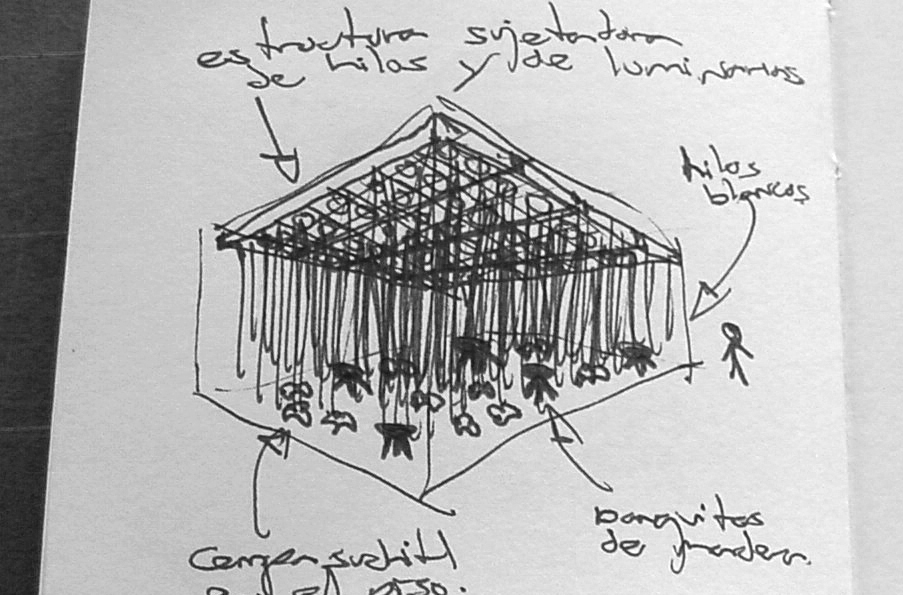 estructura sujetadora
de hilos y de luminarias
hilos
blancos
banquitos
de madera.
Cempasuchitl
en el piso.